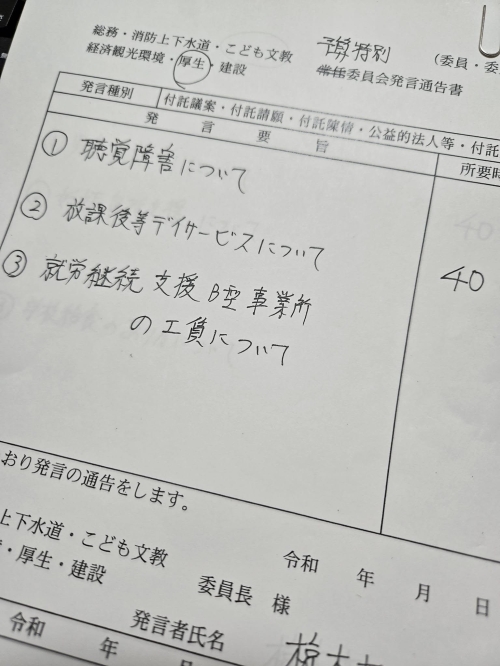 総務・消防上下水道・こども文教
経済観光環境・厚生・建設
予算特別
常任委員会発言通告書
(委員・委
発言種別
付託議案・付託請願・付託陳情・公益的法人等・付託
発言要旨
所要時
① 聴覚障害について
② 放課後等デイサービスについて
40
③ 就労継続支援B型事業所
の工賃について
おり発言の通告をします。
上下水道・こども文教
・厚生・建設
委員長 様
令和 年 月 日
発言者氏名
令和 年